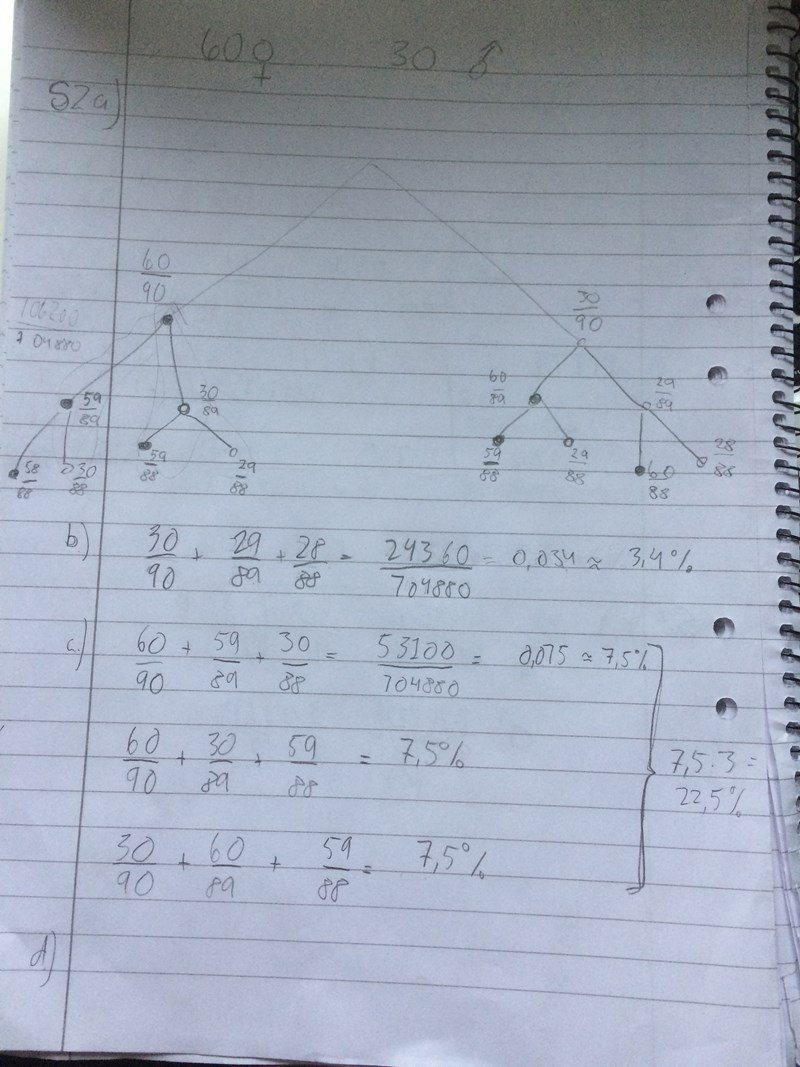 60♀ 30 ♂
52a)
60/90
30/90
704880
59/89 30/89 60/89 29/89
58/88 30/88 59/88 29/88 59/88 29/88 60/88 28/88
b) 30/90 + 29/89 + 28/88 = 24360/704880 = 0,034 ≈ 3,4%
c.) 60/90 + 59/89 + 30/88 = 53100/704880 = 0,075 ≈ 7,5%
60/90 + 30/89 + 59/88 = 7,5%
7,5·3 =
22,5%
30/90 + 60/89 + 59/88 = 7,5%
d)